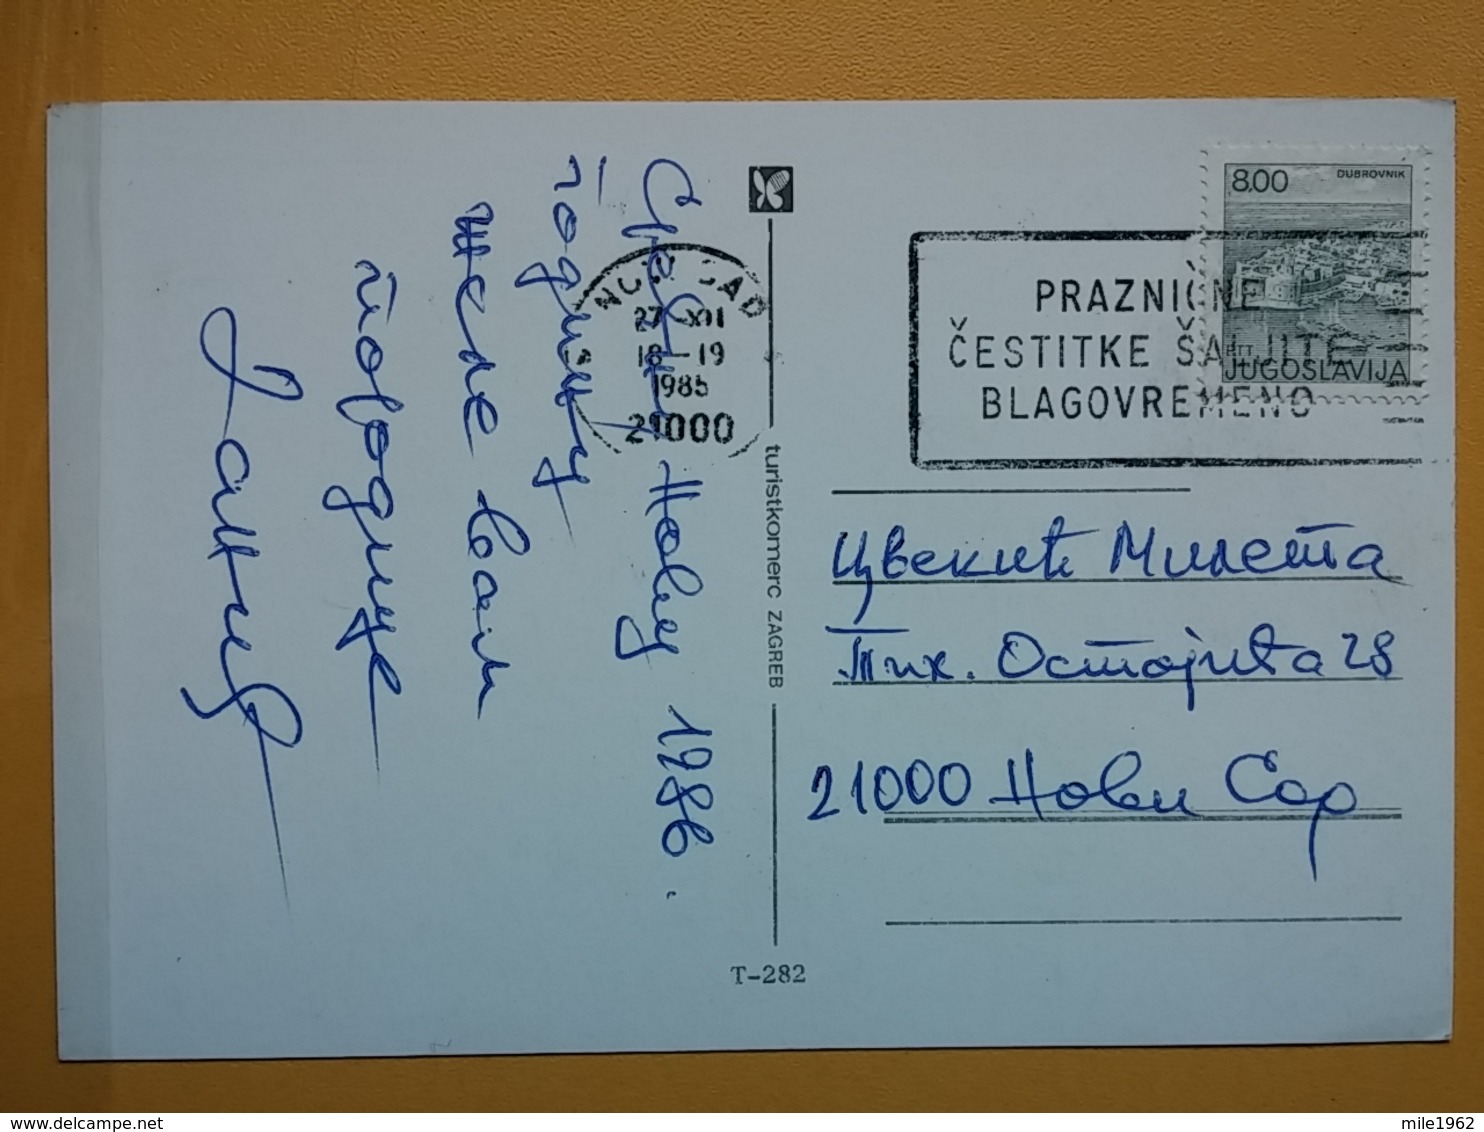 Срећну Нову 1986.
годину
желе вам
породице
8.00 DUBROVNIK
JUGOSLAVIJA
NOVI SAD
27 XII
18-19
1985
21000
PRAZNIČNE
ČESTITKE ŠALJITE
BLAGOVREMENO
turistkomerc ZAGREB
Цвекић Милета
Тих. Остојића 28
21000 Нови Сад
T-282
mile1962